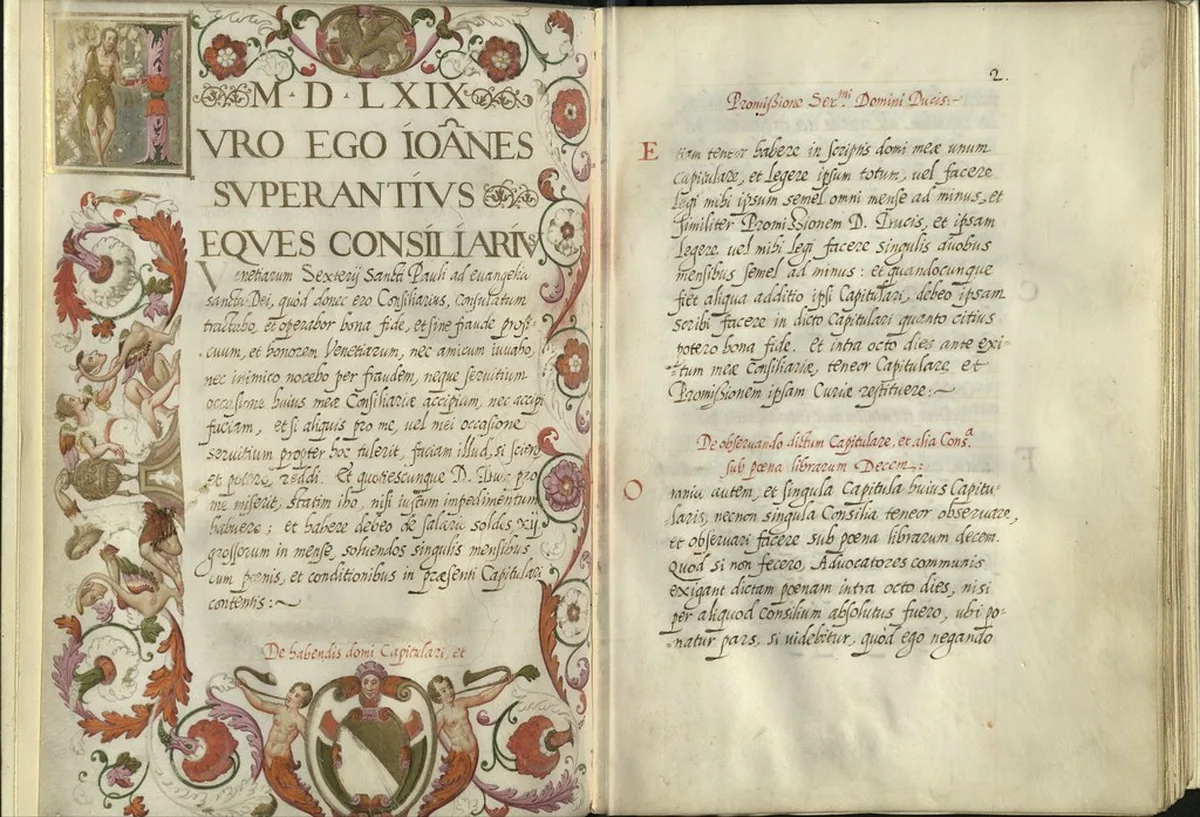 M·D·LXIX
IVRO EGO IOÂNES
SVPERANTIVS
EQVES CONSILIARIVS
Venetiarum Sexterij Sancti Pauli ad euangelia
sancta Dei, quòd donec ero Consiliarius, consulatum
tractabo, et operabor bona fide, et sine fraude profi-
cuum, et honorem Venetiarum, nec amicum iuuabo,
nec inimico nocebo per fraudem, neque seruitium
occasione huius meæ Consiliariæ accipium, nec accipi
faciam, et si aliquis pro me, uel mei occasione
seruitium propter hoc tulerit, faciam illud, si sciero
et potero, reddi. Et quotiescunque D. Dux pro
me miserit, statim ibo, nisi iustum impedimentum
habuero; et habere debeo de salario soldos xij
grossorum in mense, soluendos singulis mensibus
cum pœnis, et conditionibus in præsenti Capitulari
contentis:~
De habendis domi Capitulari, et
2.
Promissione Ser.mi Domini Ducis:~
Etiam teneor habere in scriptis domi meæ unum
Capitulare, et Legere ipsum totum, vel facere
Legi mihi ipsum semel omni mense ad minus, et
similiter Promissionem D. Ducis, et ipsam
Legere uel mihi Legi facere singulis duobus
mensibus semel ad minus: et quandocunque
fiet aliqua additio ipsi Capitulari, debeo ipsam
scribi facere in dicto Capitulari quanto citius
potero bona fide. Et intra octo dies ante exi-
tum meæ Consiliariæ, teneor Capitulare, et
Promissionem ipsam Curiæ restituere:~
De obseruando dictum Capitulare, et alia Cons.a
sub pœna librarum Decem:
Omnia autem, et singula Capitula huius Capitu-
laris, necnon singula Consilia teneor obseruare,
et obseruari facere sub pœna librarum decem.
Quod si non fecero, Aduocatores communis
exigant dictam pœnam intra octo dies, nisi
per aliquod Consilium absolutus fuero, ubi po-
natur pars, si uidebitur, quòd ego negando